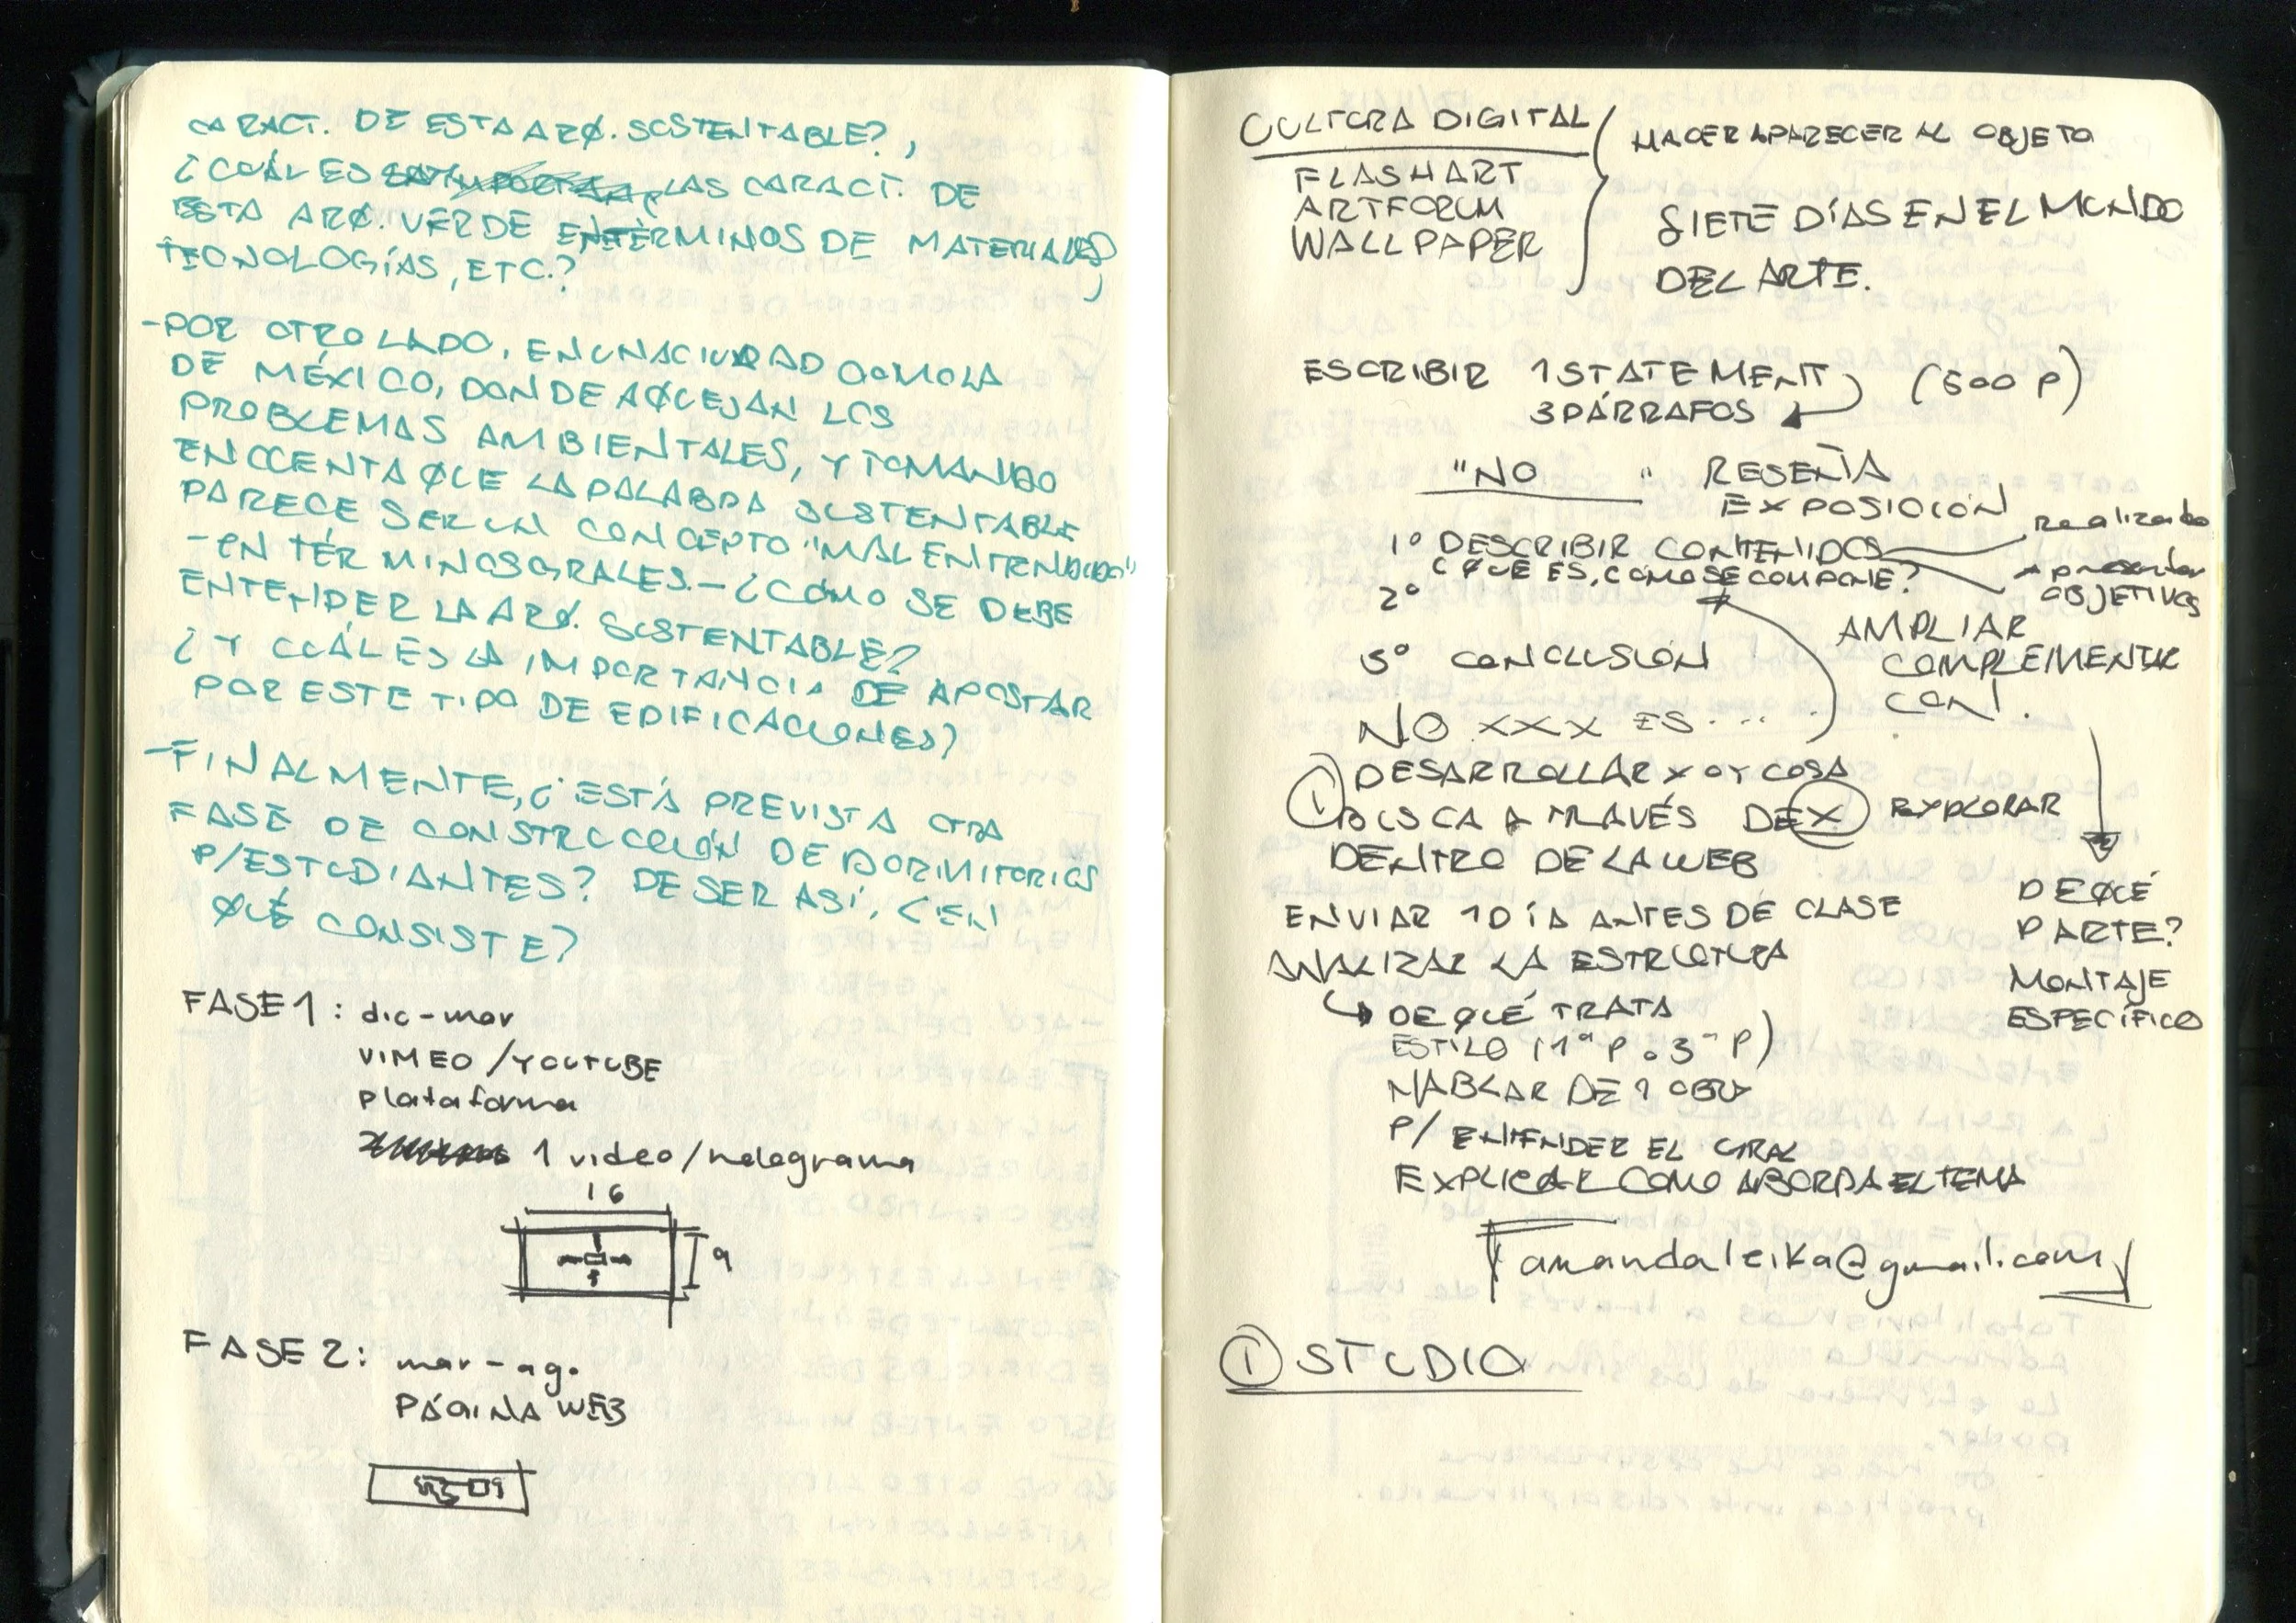 CARACT. DE ESTA ARQ. SUSTENTABLE?,
¿CUÁL ES LAS CARACT. DE
ESTA ARQ. VERDE EN TÉRMINOS DE MATERIALES,
TECNOLOGÍAS, ETC.?
-POR OTRO LADO, EN UNA CIUDAD COMO LA
DE MÉXICO, DONDE AQUEJAN LOS
PROBLEMAS AMBIENTALES, Y TOMANDO
EN CUENTA QUE LA PALABRA SUSTENTABLE
PARECE SER UN CONCEPTO "MAL ENTENDIDO"
-EN TÉRMINOS GRALES.- ¿CÓMO SE DEBE
ENTENDER LA ARQ. SUSTENTABLE?
¿Y CUÁL ES LA IMPORTANCIA DE APOSTAR
POR ESTE TIPO DE EDIFICACIONES?
-FINALMENTE, ¿ESTÁ PREVISTA OTRA
FASE DE CONSTRUCCIÓN DE DORMITORIOS
P/ESTUDIANTES? DE SER ASÍ, ¿EN
QUÉ CONSISTE?
FASE 1: dic-mar
VIMEO/YOUTUBE
plataforma
1 video/holograma
16
9
FASE 2: mar-ago
PÁGINA WEB
CULTURA DIGITAL
FLASHART
ARTFORUM
WALLPAPER
HACER APARECER AL OBJETO
SIETE DÍAS EN EL MUNDO
DEL ARTE.
ESCRIBIR 1 STATEMENT (500 P)
3 PÁRRAFOS
"NO " RESEÑA
EXPOSICIÓN
1º DESCRIBIR CONTENIDOS realizado
¿QUE ES, COMO SE COMPONE? a presentar
2º OBJETIVOS
3º CONCLUSIÓN
AMPLIAR
COMPLEMENTAR
CON!
NO XXX ES ....
① DESARROLLAR X O Y COSA
BUSCA A TRAVÉS DE X EXPLORAR
DENTRO DE LA WEB
ENVIAR 1 DÍA ANTES DE CLASE
ANALIZAR LA ESTRUCTURA
DE QUÉ TRATA
ESTILO (1ª P o 3ª P)
HABLAR DE 1 OBRA
P/ ENTENDER EL GRAL
EXPLICAR COMO ABORDA EL TEMA
DE QUÉ
PARTE?
MONTAJE
ESPECÍFICO
amandaleika@gmail.com
① STUDIO